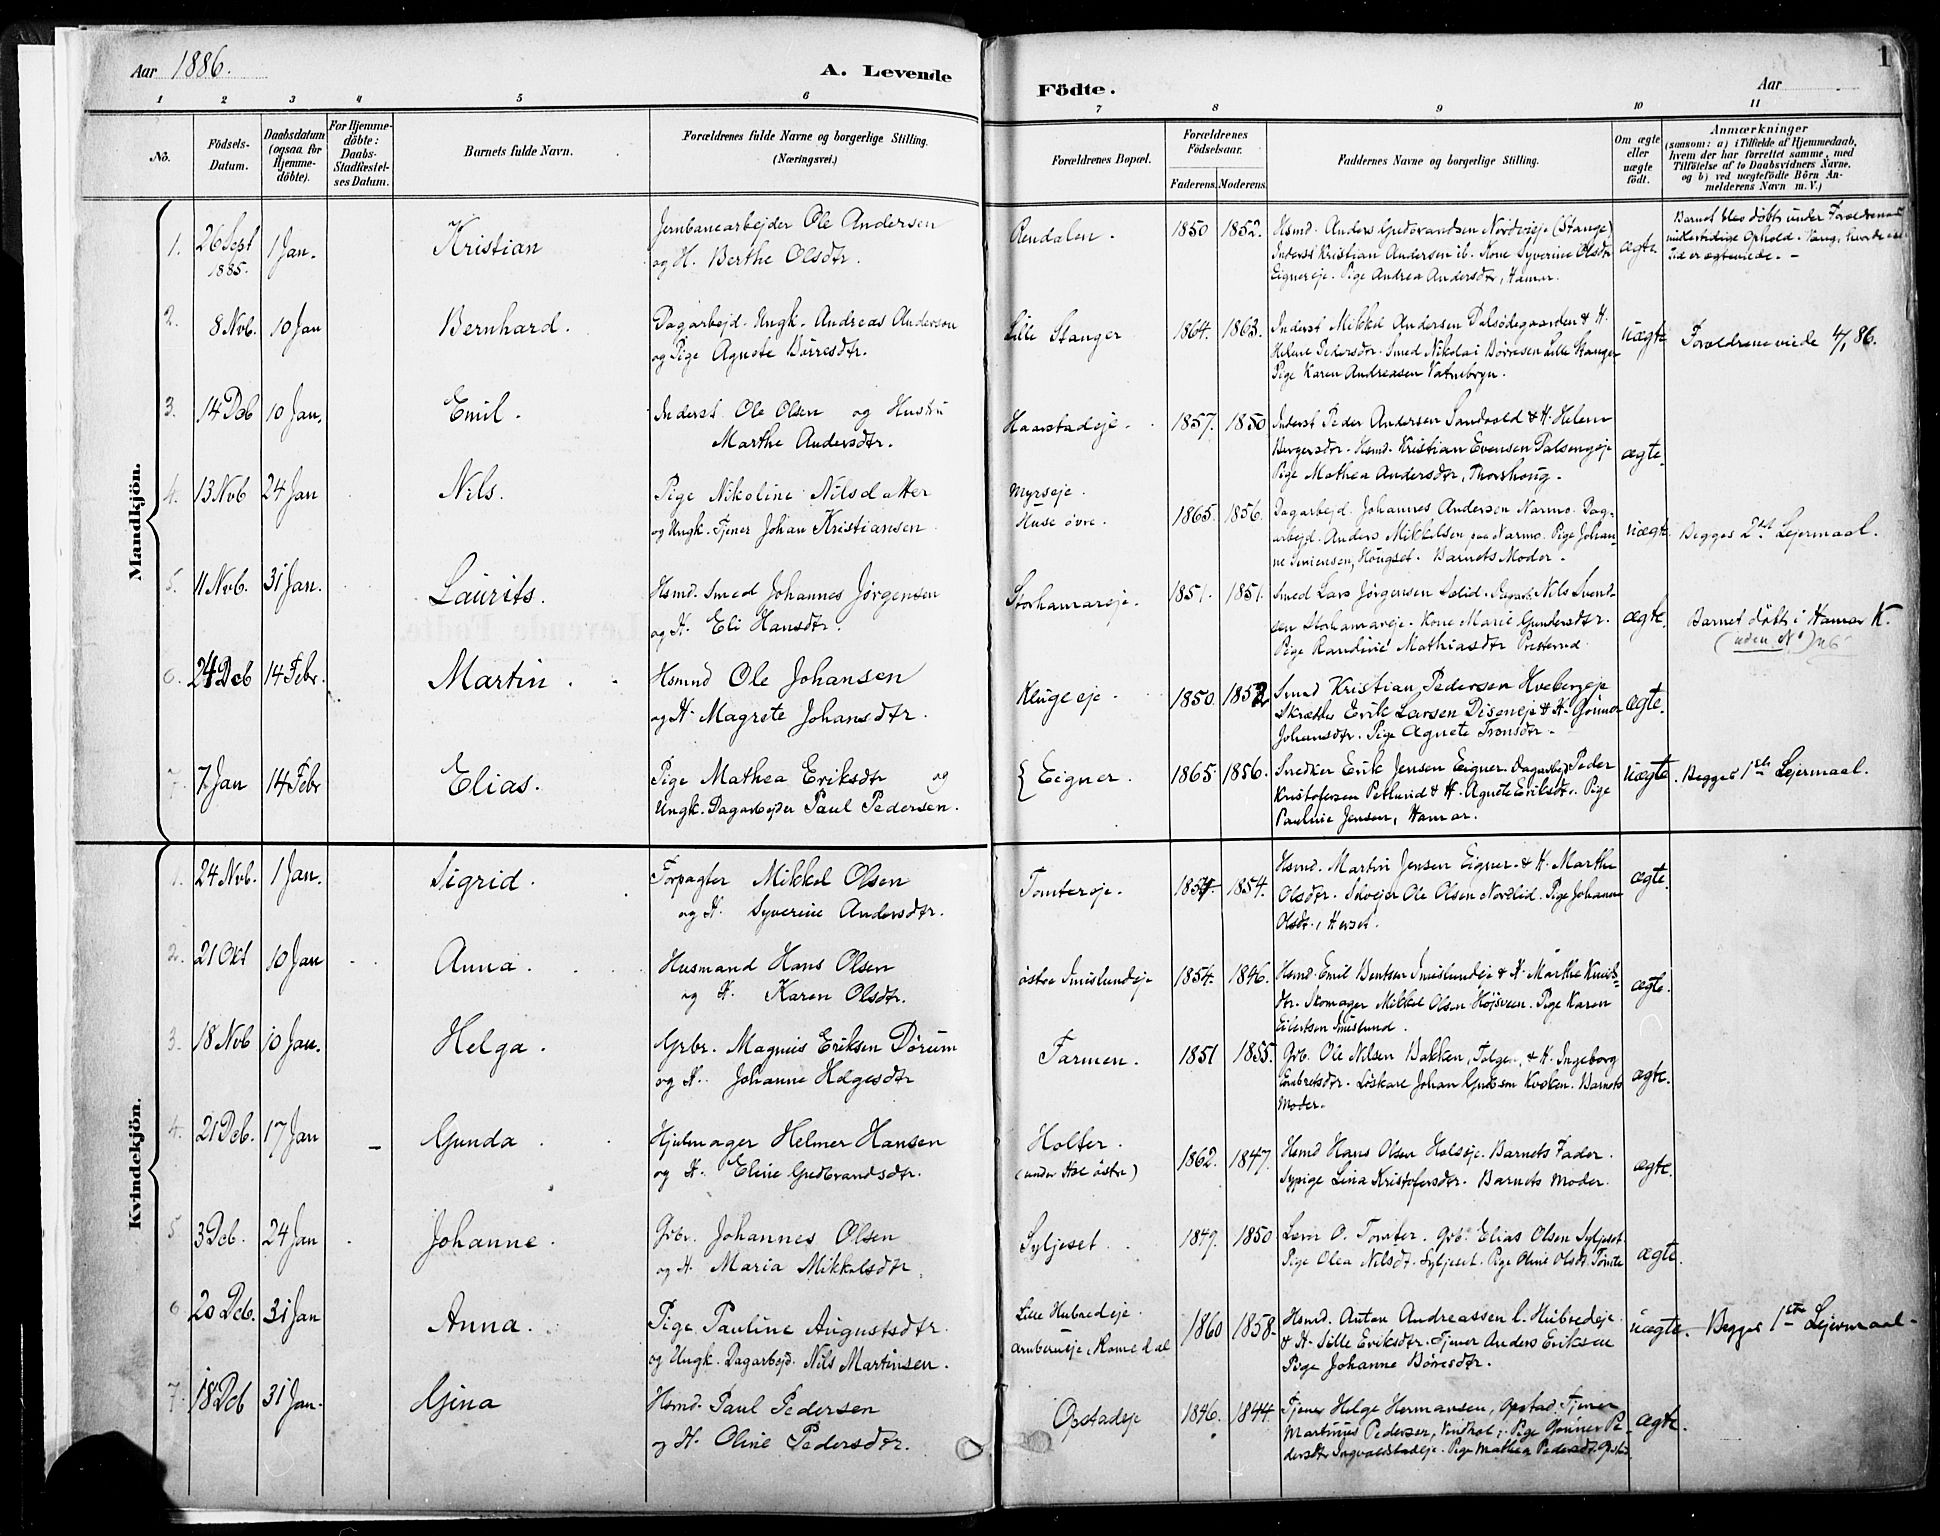 Aar 1886.
A. Levende
Födte.
Aar
1
1 2 3 4 5 6 7 8 9 10 11
No.
Födsels-Datum.
Daabsdatum (ogsaa for Hjemme-döbte).
For Hjemme-döbte: Daabs-Stadfæstel-ses Datum.
Barnets fulde Navn.
Forældrenes fulde Navne og borgerlige Stilling. (Næringsvei.)
Forældrenes Bopæl.
Forældrenes Födselsaar.
Faderens. Moderens.
Faddernes Navne og borgerlige Stilling.
Om ægte eller uægte födt.
Anmærkninger
(saasom: a) i Tilfælde af Hjemmedaab, hvem der har forrettet samme, med Tilföielse af to Daabsvidners Navne, og b) ved uægtefödte Börn An-melderens Navn m. V.)
Mandkjön.
1. 26 Sept 1885. 1 Jan. Kristian
Jernbanearbejder Ole Andersen
og H. Berthe Olsdtr.
Rendalen. 1850 1852.
Hsmd. Anders Gudbrandsen Nordvieje (Stange)
Inderst Kristian Andersen ib. Kone Syverine Olsdtr
Eignereje. Pige Andrea Andersdtr, Hamar.
ægte.
Barnet blev döbt under Forældrenes
midlertidige Ophold i Vang, hvor de
2. 8 Nvb. 10 Jan Bernhard.
Dagarbejd. Ungk. Andreas Anderson
og Pige Agnete Børresdtr.
Lille Stanger 1864. 1863.
Inderst Mikkel Andersen Dalsødegaarden & H.
Helene Pedersdtr. Smed Nikolai Børresen Lille Stanger
Pige Karen Andreasen Vatnebryn.
uægte
Forældrene viede 4/1 86.
3. 14 Dcb 10 Jan. Emil.
Inderst Ole Olsen og Hustru
Marthe Andersdtr.
Haarstadeje. 1857. 1850
Inderst Peder Andersen Sandvold & H. Helene
Bergersdtr. Hsmd. Kristian Evensen
Pige Mathea Andersdtr, Thorshoug.
ægte.
4. 13 Nvb 24 Jan Nils.
Pige Nikoline Nilsdatter
og Ungk. Tjener Johan Kristiansen
Myrseje.
Huse øvre. 1865. 1856.
Dagarbejd. Johannes Andersen Narmo. Dag-
arbejd. Anders Mikkelsen Narmo. Pige Johan-
ne Hougset. Barnets Moder.
uægte.
Begges 2det Lejermaal.
5. 11 Nvb. 31 Jan. Laurits.
Hsmd. Smed Johannes Jørgensen
og H. Eli Hansdtr.
Storhamareje. 1851. 1851.
Smed Lars Jørgensen Nils Svend-
sen Storhamareje. Kone Marie Gundersdtr.
Pige Randine Mathiasdtr Presterud
ægte.
Barnet döbt i Hamar K.
(uden No)
6. 24 Dcb 14 Febr. Martin.
Hsmnd Ole Johansen
og H. Magrete Johansdtr.
Klugeeje. 1850. 1852
Smed Kristian Pedersen Hvebergeje
Skrædder Erik Larsen Diseneje & H. Gunnor
Johansdtr. Pige Agnete Tronsdtr.
ægte.
7. 7 Jan 14 Febr Elias.
Pige Mathea Eriksdtr og
Ungk. Dagarbejder Paul Pedersen.
Eigner. 1865. 1856.
Snedker Erik Jensen Eigner. Dagarbejd Peder
Kristofersen Petlund & H. Agnete Eriksdtr. Pige
Pauline Jensen, Hamar.
uægte.
Begges 1ste Lejermaal.
Kvindekjön.
1. 24 Nvb. 1 Jan. Sigrid.
Forpagter Mikkel Olsen
og H. Syverine Andersdtr.
Tomtereje. 1854. 1854.
Hsmd. Martin Jensen Eigner & H. Marthe
Olsdtr. Selvejer Ole Olsen Nordlid. Pige Johanne
Olsdtr.
ægte.
2. 21 Okt 10 Jan Anna.
Husmand Hans Olsen
og H. Karen Olsdtr.
østre Imislundeje 1854. 1846.
Hsmd. Emil Bentsen Imislundeje & H. Marthe Knuds-
dtr. Skomager Mikkel Olsen Højsveen. Pige Karen
Imislund.
ægte.
3. 18 Nvb 10 Jan. Helga.
Grbr. Magnus Eriksen Dørum
og H. Johanne Helgesdtr
Farmen. 1851 1855.
Grb. Ole Nilsen Bakken, Tolgen, & H. Ingeborg
Embretsdtr. Løskare Johan Kveken. Barnets
Moder.
ægte.
4. 21 Dcb. 17 Jan Gunda
Hjulmager Helmer Hansen
og H. Eline Gudbrandsdtr.
Holter.
(under Hol østre) 1862. 1847.
Hsmd Hans Olsen Holseje. Barnets Fader.
Sypige Lina Kristofersdtr. Barnets Moder.
ægte.
5. 3 Dcb. 24 Jan Johanne.
Grbr. Johannes Olsen
og H. Maria Mikkelsdtr
Syljeset. 1849. 1850
Lærer O. Tomter. Grb. Elias Olsen Syljeset.
Pige Olea Nilsdt. Syljeset. Pige Oline Olsdt. Tomte
ægte.
6 20 Dcb. 31 Jan Anna.
Pige Pauline Augustsdtr.
og Ungk. Dagarbejd. Nils Martinsen.
Lille Hubredeje.
Arnbergeje, Romedal 1860 1858.
Hsmd. Anton Andreassen l. Hubredeje
& H. Sille Eriksdtr. Tjener Anders Eriksen
Pige Johanne Børresdtr.
uægte.
Begges 1ste Lejermaal.
7. 18 Dcb 31 Jan. Gina
Hsmd. Paul Pedersen
og H. Oline Pedersdtr.
Opstadeje 1846. 1844.
Tjener Helge Hermansen, Opstad. Tjener
Martinus Pedersen, Pige Gunnor Pe-
dersdtr Ingvaldstadeje. Pige Mathea Pedersdt. Opstad
ægte.